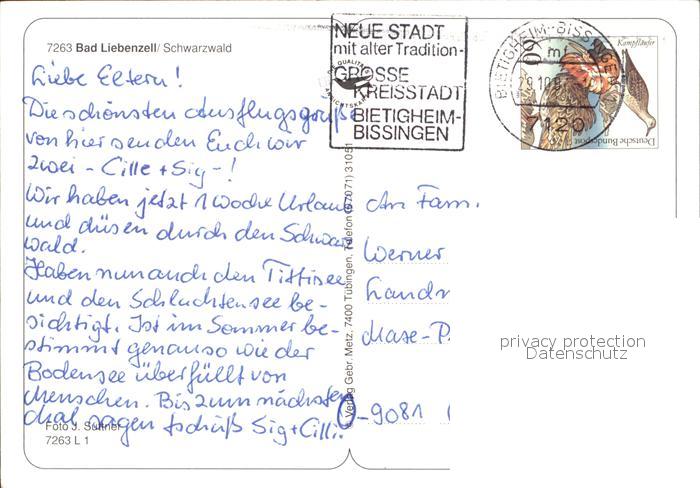 7263 Bad Liebenzell/ Schwarzwald
Liebe Eltern!
Die schönsten Ausflugsgrüße
von hier senden Euch wir
zwei - Cille + Sig - !
Wir haben jetzt 1 Woche Urlaub
und düsen durch den Schwarz
wald.
Haben nun auch den Titisee
und den Schluchtensee be-
sichtigt. Ist im Sommer be-
stimmt genauso wie der
Bodensee überfüllt von
Menschen. Bis zum nächsten
Mal sagen tschüß Sig + Cilli.
Foto J. Süttner
7263 L 1
© Verlag Gebr. Metz, 7400 Tübingen, Telefon (07071) 31051
NEUE STADT
mit alter Tradition-
GROSSE
KREISSTADT
BIETIGHEIM-
BISSINGEN
BIETIGHEIM-BISSINGEN
120
Kampfläufer
Deutsche Bundespost
An Fam.
Werner
Landr
Mase-P
-9081
privacy protection
Datenschutz